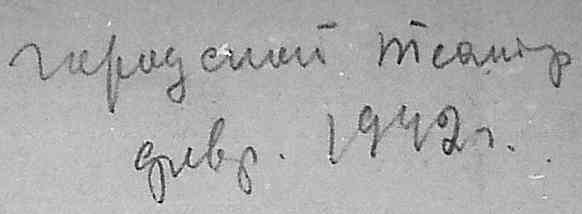 городской театр
февр. 1942 г.